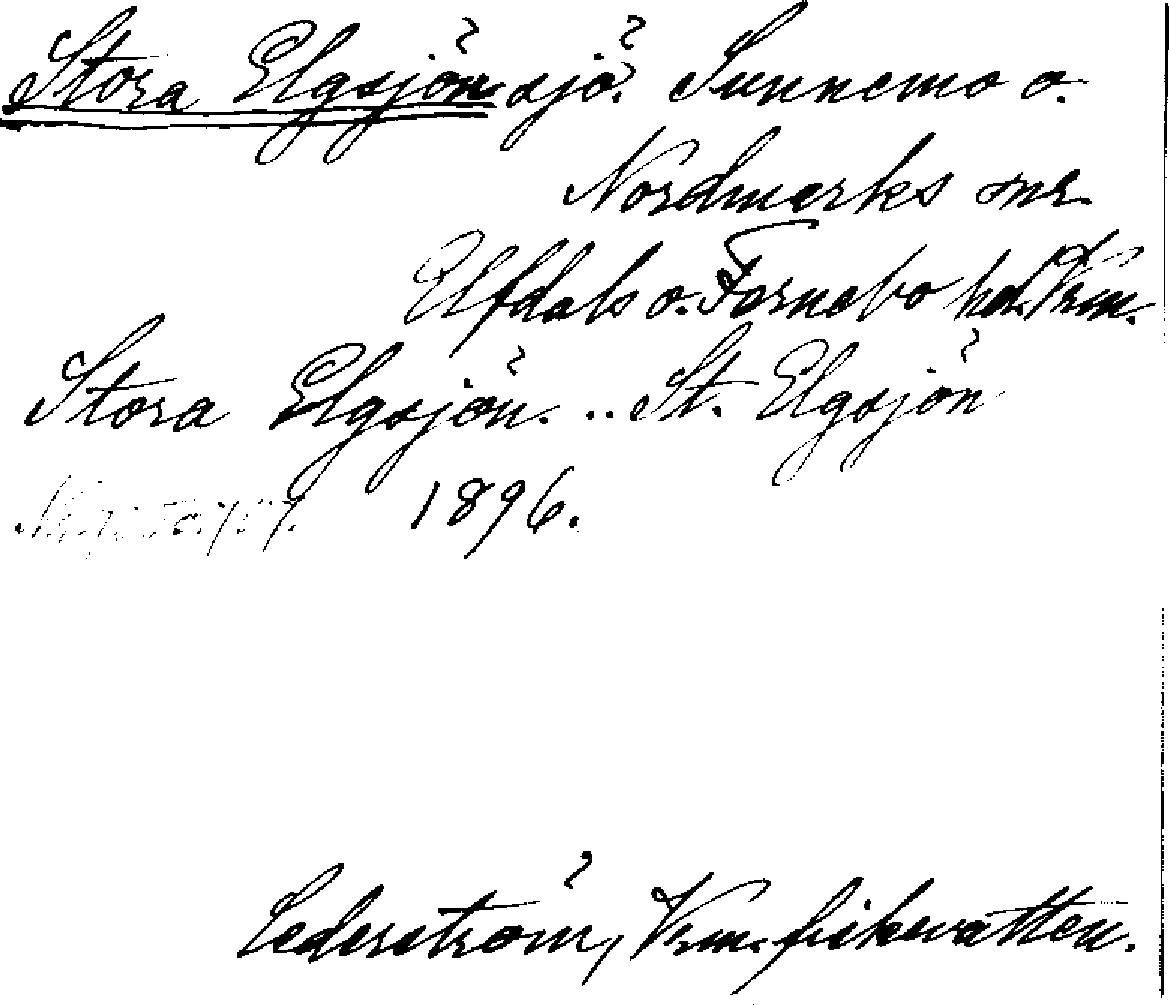 Stora Elgsjön sjö. Sunnemo o.
Nordmarks snr.
Elfdals o. Färnebo hd. Vrm.
Stora Elgsjön. .. St. Elgsjön
1896.
Cederström, Vrm. fiskvatten.